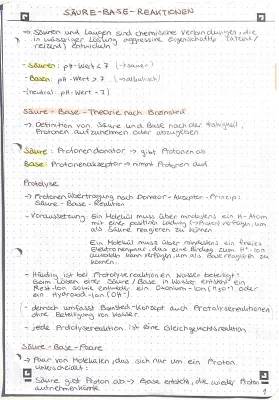 SÄURE-BASE-REAKTIONEN
→ Säuren und Laugen sind chemische Verbindungen, die
in wässriger Lösung aggressive Eigenschaften (ätzend/
reizend) entwickeln
- Säuren: pH-Wert < 7 (→ sauer)
- Basen: pH-Wert > 7 (→ alkalisch)
- (neutral: pH-Wert = 7)
Säure-Base-Theorie nach Brønsted
→ Definition von Säure und Base nach der Fähigkeit
Protonen aufzunehmen oder abzugeben
Säure: Protonendonator → gibt Protonen ab
Base: Protonenakzeptor → nimmt Protonen auf
Protolyse
→ Protonenübertragung nach Donator-Akzeptor-Prinzip:
Säure-Base-Reaktion
- Voraussetzung: Ein Molekül muss über mindestens ein H-Atom
mit einer positiven Ladung verfügen, um
als Säure reagieren zu können
Ein Molekül muss über mindestens ein freies
Elektronenpaar, das eine Bindung zum H⁺-Ion
ausbilden kann verfügen, um als Base reagieren zu
können.
- Häufig ist bei Protolysereaktionen Wasser beteiligt:
Beim Lösen einer Säure / Base in Wasser entsteht ein
Rest-Ion sowie entweder ein Oxonium-Ion (H₃O⁺) oder
ein Hydroxid-Ion (OH⁻)
- demnach umfasst Brønsted-Konzept auch Protolysereaktionen
ohne Beteiligung von Wasser.
- jede Protolysereaktion ist eine Gleichgewichtsreaktion
Säure-Base-Paare
→ Paar von Molekülen, das sich nur um ein Proton
unterscheidet:
Säure gibt Proton ab → Base entsteht, die wieder Proton
aufnehmen könnte
1